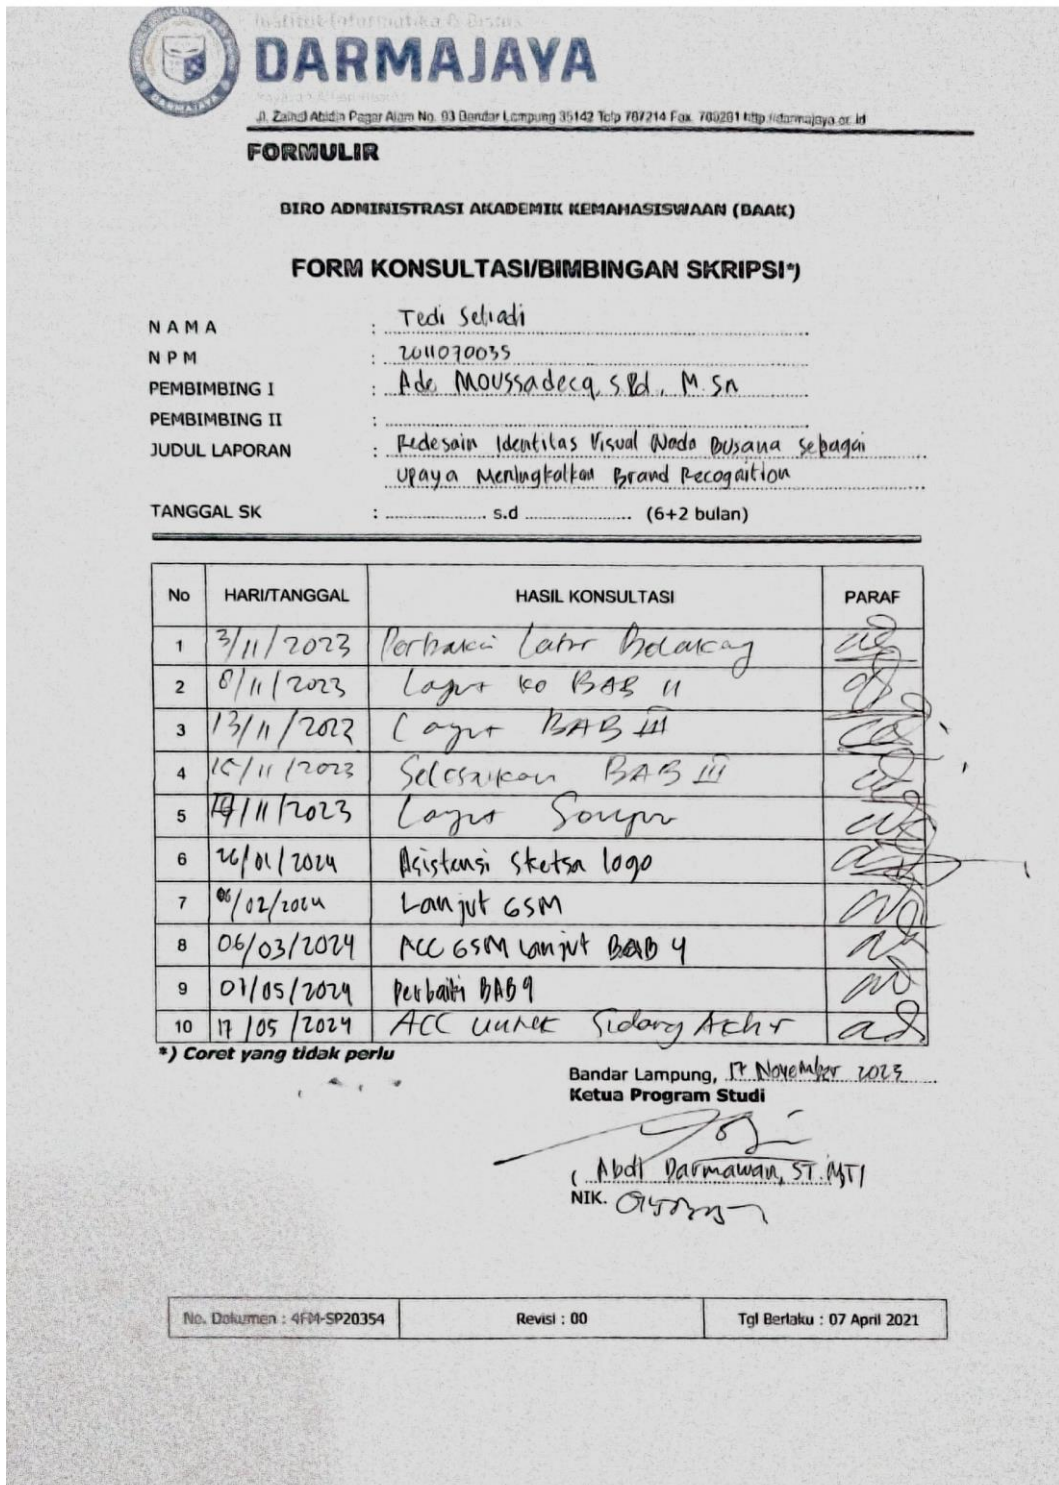 Institut Informatika & Bisnis
DARMAJAYA
Jl. Zainal Abidin Pagar Alam No. 93 Bandar Lampung 35142 Telp 787214 Fax. 700261 http://darmajaya.ac.id
FORMULIR
BIRO ADMINISTRASI AKADEMIK KEMAHASISWAAN (BAAK)
FORM KONSULTASI/BIMBINGAN SKRIPSI*)
N A M A : Tedi Setiadi
N P M : 2011070035
PEMBIMBING I : Ade Moussadecq, S.Pd., M.Sn
PEMBIMBING II :
JUDUL LAPORAN : Redesain Identitas Visual Busana Sebagai
Upaya Meningkatkan Brand Recognition
TANGGAL SK : s.d (6+2 bulan)
No HARI/TANGGAL HASIL KONSULTASI PARAF
1 3/11/2023 Perbaiki Latar Belakang
2 8/11/2023 Lanjut ke BAB II
3 13/11/2023 Lanjut BAB III
4 /11/2023 Selesaikan BAB III
5 /11/2023 Lanjut
6 26/01/2024 Asistensi Sketsa logo
7 06/02/2024 Lanjut GSM
8 06/03/2024 ACC GSM Lanjut BAB 4
9 07/05/2024 Perbaiki BAB 4
10 17/05/2024 ACC untuk Sidang Akhir
*) Coret yang tidak perlu
Bandar Lampung, 17 November 2023
Ketua Program Studi
( Abdi Darmawan, ST. MTI
NIK.
No. Dokumen : 4FM-SP20354 Revisi : 00 Tgl Berlaku : 07 April 2021